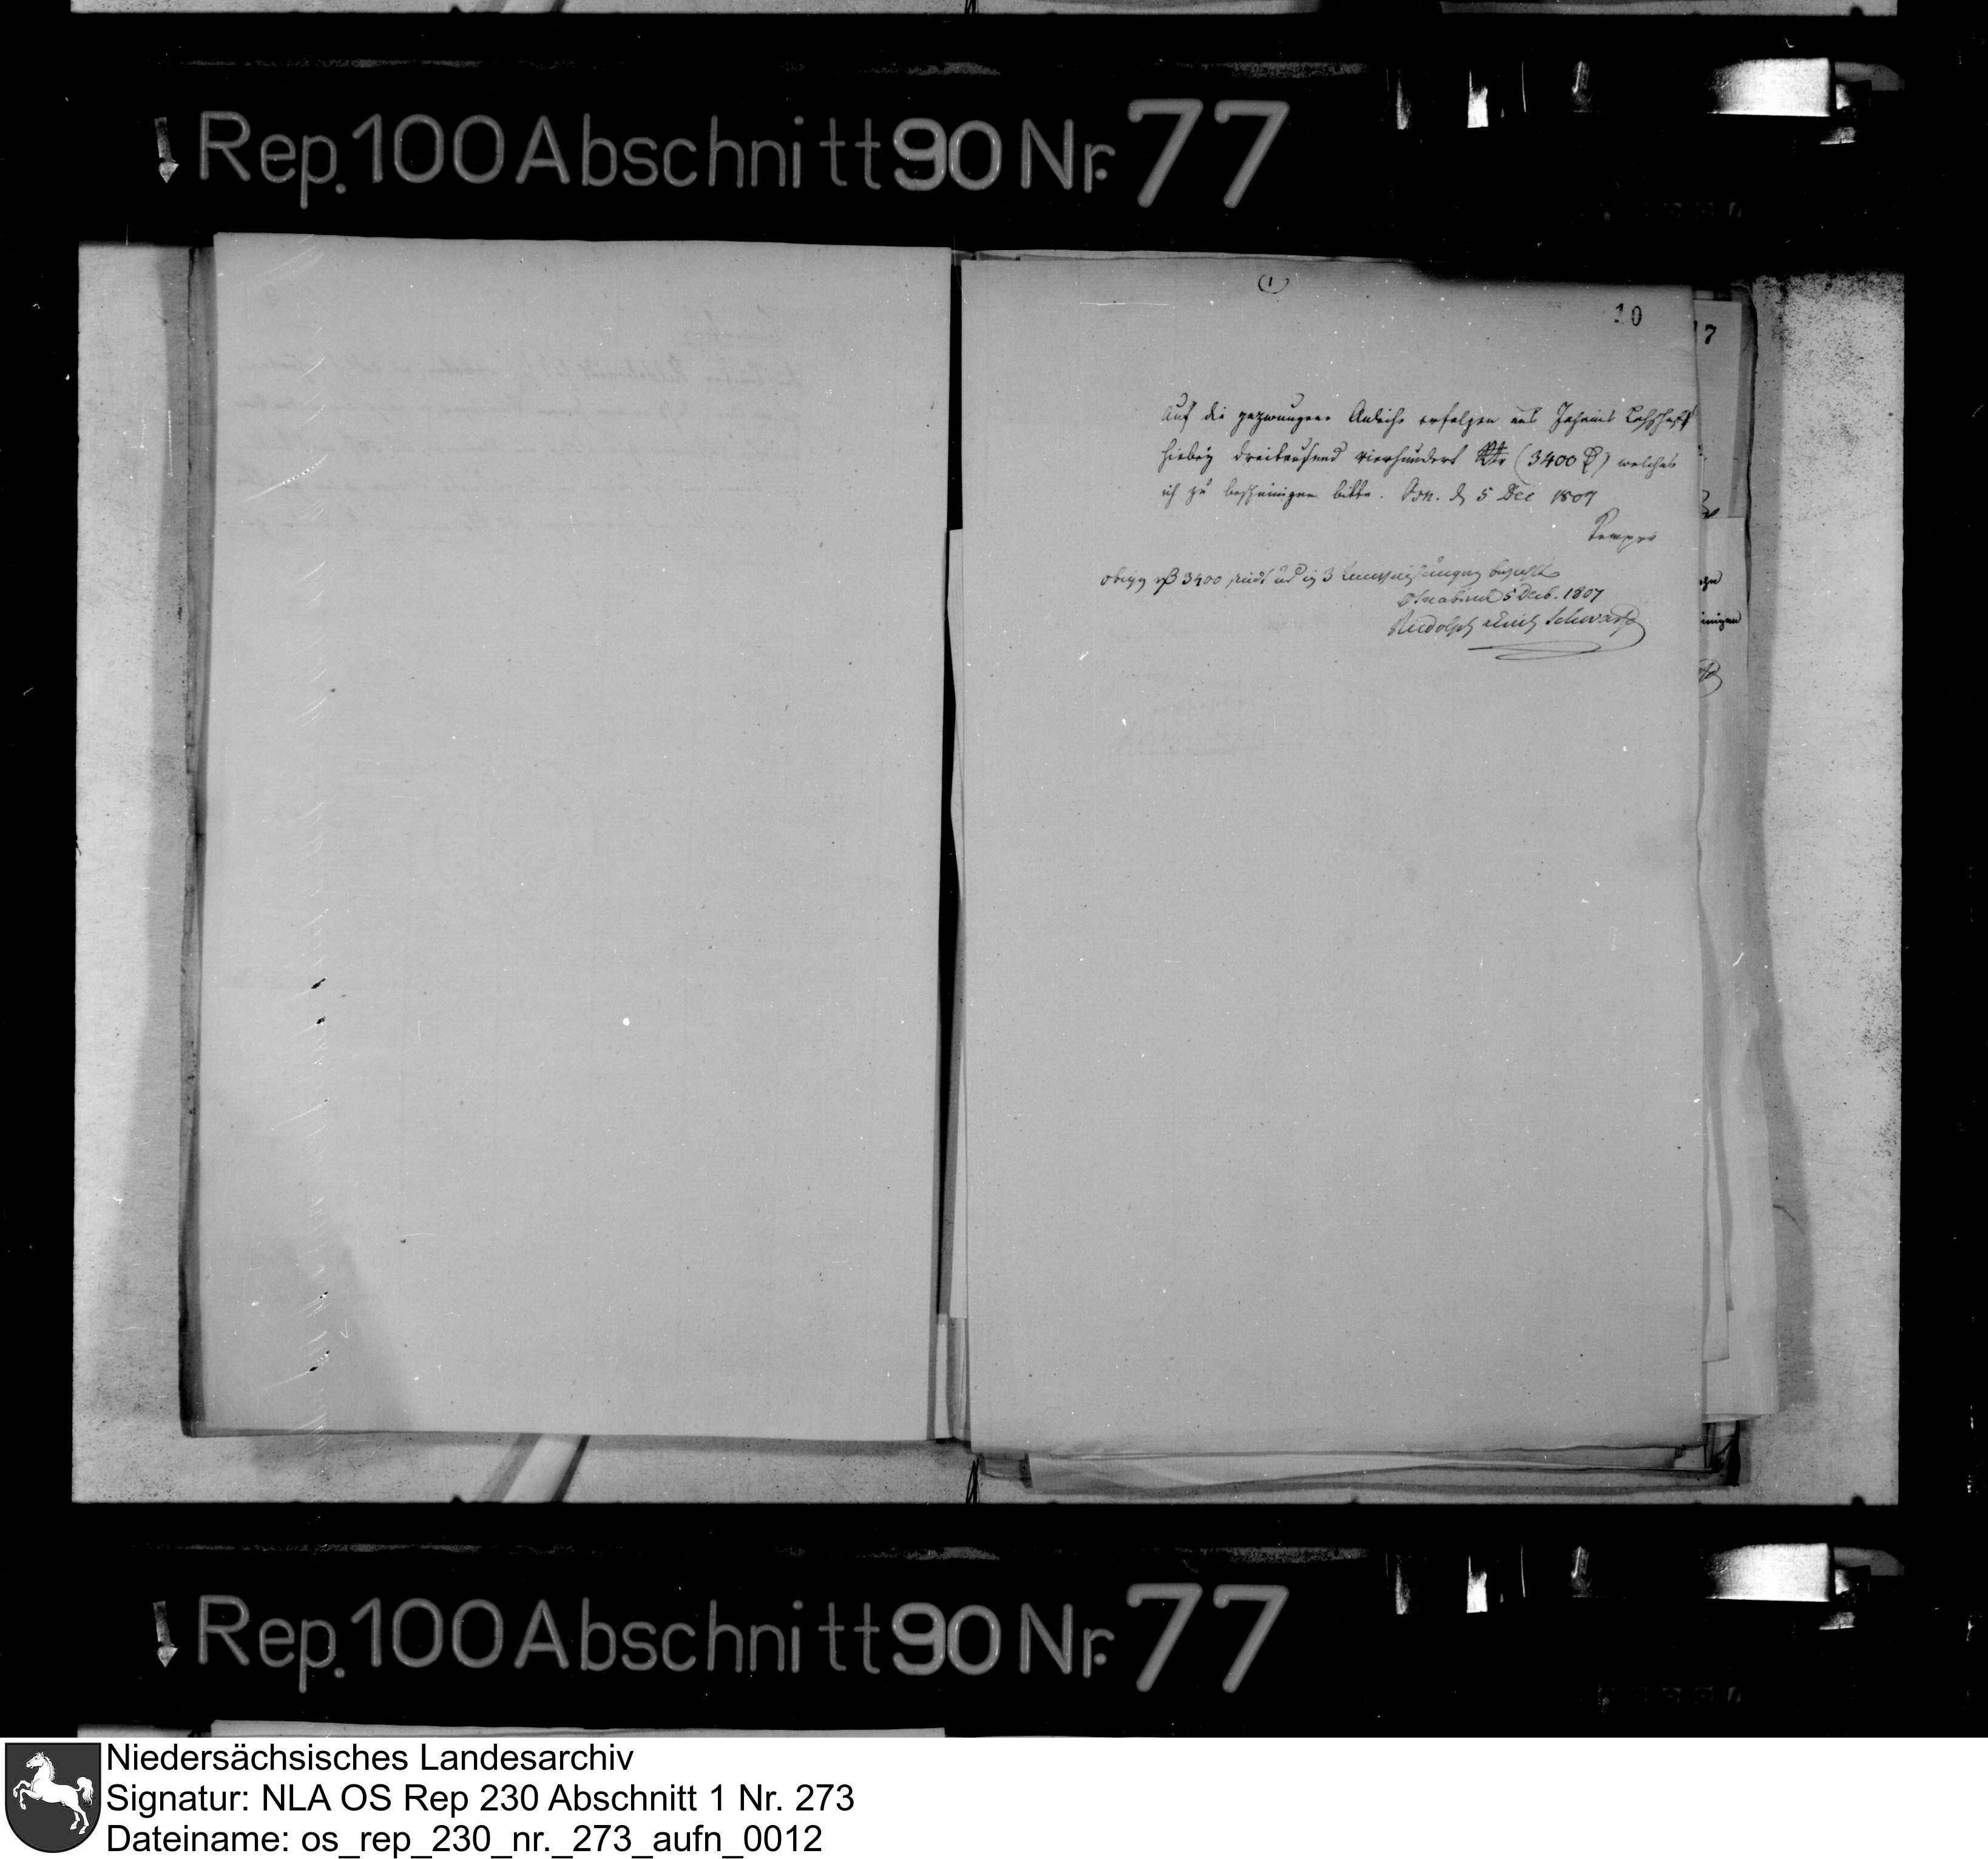 Rep. 100 Abschnitt 90 Nr. 77
(1)
10
17
Auf die gezwungene Anleihe erfolgen aus Johannis
hiebey dreitausend vierhundert Rtr (3400 ) welches
ich zu bescheinigen bitte. Osn. d 5 Dec 1807
obige 3400 sind in 3 bezahlt
Osnabrück 5 Decb. 1807
Rudolph Schwartze
Rep. 100 Abschnitt 90 Nr. 77
Niedersächsisches Landesarchiv
Signatur: NLA OS Rep 230 Abschnitt 1 Nr. 273
Dateiname: os_rep_230_nr._273_aufn_0012